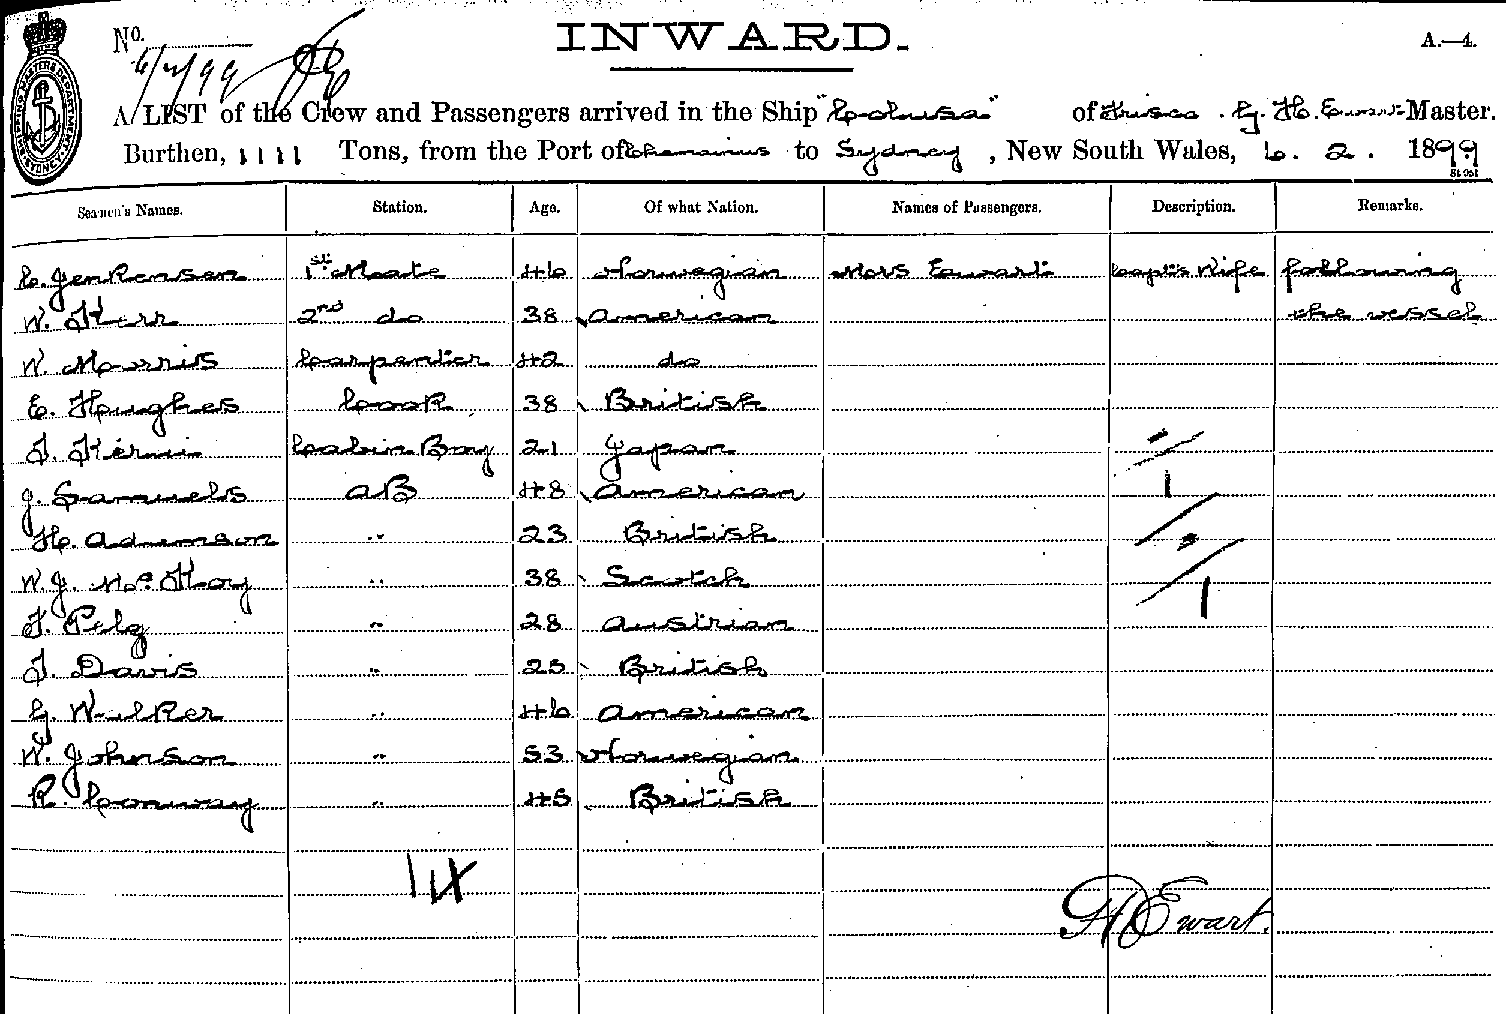 No. 6/2/99
INWARD.
A.—4.
A LIST of the Crew and Passengers arrived in the Ship "Colusa" of Frisco. G. H. Ewart Master.
Burthen, 1111 Tons, from the Port of Chemainus to Sydney, New South Wales, 6. 2. 1899
Seamen's Names. Station. Age. Of what Nation. Names of Passengers. Description. Remarks.
C. Jenkensen 1st Maate 46 Norwegian Mrs Ewart Capt's Wife following
W. Kerr 2nd do 38 American the vessel
W. Morris Carpenter 42 do
E. Hughes Cook 38 British
Cabin Boy 21 Japan
J. Samuels AB 48 American
H. Adamson " 23 British
W. J. McKoy " 38 Scotch
F. Pelg " 28 Austrian
T. Davis " 25 British
G. Walker " 46 American
W. Johnson " 53 Norwegian
R. Conway " 45 British
14
H Ewart.